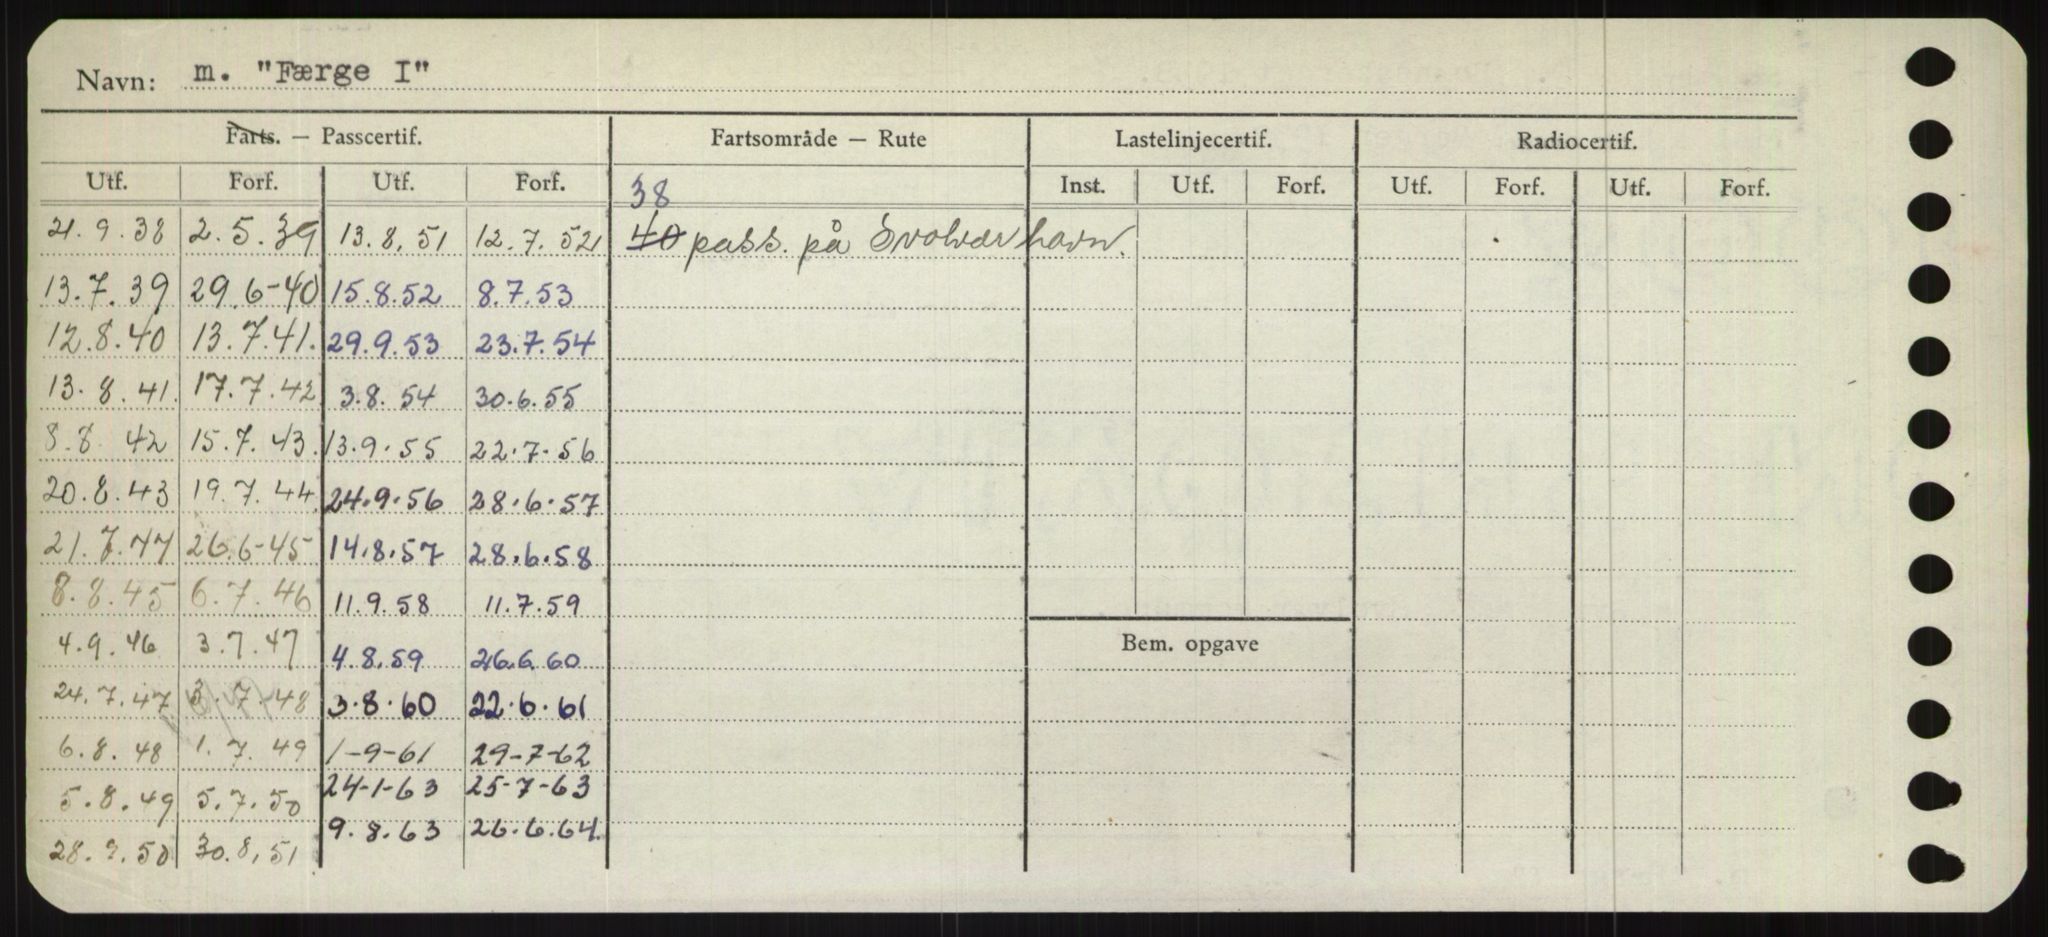 Navn: m. "Færge I"
Farts. — Passcertif. Fartsområde — Rute Lastelinjecertif. Radiocertif.
Utf. Forf. Utf. Forf. Inst. Utf. Forf. Utf. Forf. Utf. Forf.
38
21.9.38 2.5.39 13.8.51 12.7.52 40 pass. på Svolvær havn.
13.7.39 29.6-40 15.8.52 8.7.53
12.8.40 13.7.41. 29.9.53 23.7.54
13.8.41. 17.7.42 3.8.54 30.6.55
8.8.42 15.7.43. 13.9.55 22.7.56
20.8.43 19.7.44 24.9.56 28.6.57
21.7.44 26.6-45 14.8.57 28.6.58
8.8.45 6.7.46 11.9.58 11.7.59
4.9.46 3.7.47 4.8.59 26.6.60
Bem. opgave
24.7.47 3.7.48 3.8.60 22.6.61
6.8.48 1.7.49 1-9-61 29-7-62
5.8.49 5.7.50 24-1-63 25-7-63
28.9.50 30.8.51 9.8.63 26.6.64.